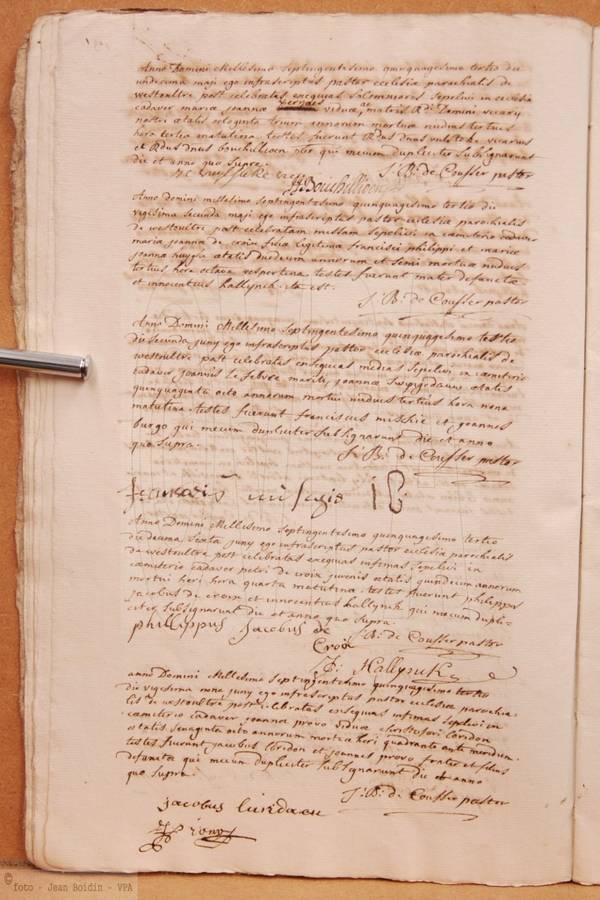 Anno Domini Millesimo septingentesimo quinquagesimo tertio die
undecima maji ego infrascriptus pastor ecclesiæ parochialis de
westoultre post celebratas exequias solemniores sepelivi in ecclesia
cadaver mariæ joannæ viduæ, matris Rdi Domini vicary
nostri ætatis octoginta trium annorum mortuæ nudius tertius
hora tertia matutina testes fuerunt Rdus dnus vicarius
et Rdus dnus bouchillioen pter qui mecum dupliciter subsignarunt
die et anno quo supra.
J. B. de Cousser pastor
Bouchillioen
Anno domini millesimo septingentesimo quinquagesimo tertio die
vigesima secunda maji ego infrascriptus pastor ecclesiæ parochialis
de westoultre post celebratam missam sepelivi in cæmeterio cadaver
maria joanna de croix filia legitima francisci philippi et mariæ
joanna ætatis duodecim annorum et semi mortuæ nudius
tertius hora octava vespertina testes fuerunt mater defunctæ
et innocentius hallynck. ita est.
J. B. de Cousser pastor
Anno Domini Millesimo septingentesimo quinquagesimo tertio
die secunda juny ego infrascriptus pastor ecclesiæ parochialis de
westoultre post celebratas exsequias medias sepelivi in cæmeterio
cadaver joannis Le febvre mariti joannæ ætatis
quinquaginta octo annorum mortui nudius tertius hora nona
matutina. testes fuerunt franciscus et joannes
burgo qui mecum dupliciter subsignarunt die et anno
quo supra.
J. B. de Cousser pastor
fransois
Anno Domini Millesimo septingentesimo quinquagesimo tertio
die decima sexta juny ego infrascriptus pastor ecclesiæ parochialis
de westoultre post celebratas exequias infimas sepelivi in
cæmeterio cadaver petri de croix juvenis ætatis quindecim annorum
mortui heri hora quarta matutina. testes fuerunt philippus
jacobus de croix et innocentius hallynck qui mecum dupli-
citer subsignarunt die et anno quo supra.
philippus Jacobus de
Croix
J. B. de Cousser pastor
Hallynck
anno Domini Millesimo septingentesimo quinquagesimo tertio
die vigesima nona juny ego infrascriptus pastor ecclesiæ parochia-
lis de westoultre post celebratas exsequias infimas sepelivi in
cæmeterio cadaver joannæ provo viduæ christofori loridon
ætatis sexaginta octo annorum mortuæ heri quadrante ante meridiem.
testes fuerunt jacobus loridon et joannes provo frater et filius
defunctæ qui mecum dupliciter subsignarunt die et anno
quo supra.
J. B. de Cousser pastor
jacobus
© foto - Jean Boidin - VPA